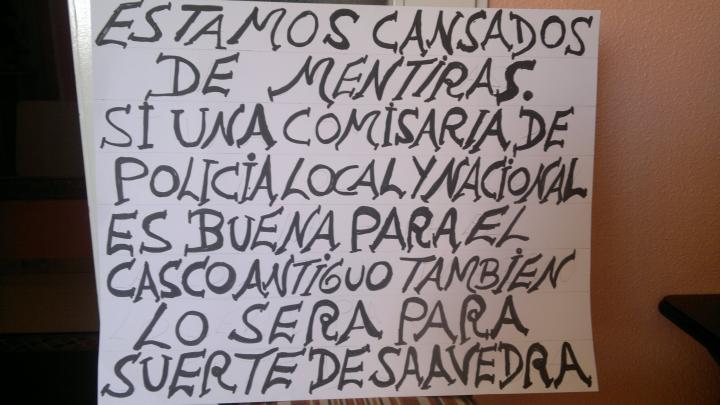 ESTAMOS CANSADOS
DE MENTIRAS.
SI UNA COMISARIA DE
POLICIA LOCAL Y NACIONAL
ES BUENA PARA EL
CASCO ANTIGUO TAMBIEN
LO SERA PARA
SUERTE DE SAAVEDRA